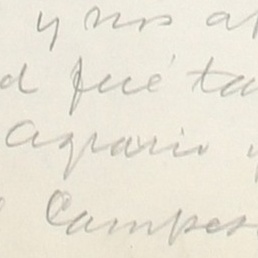 y nos a
d fué ta
Agrario y
Campes